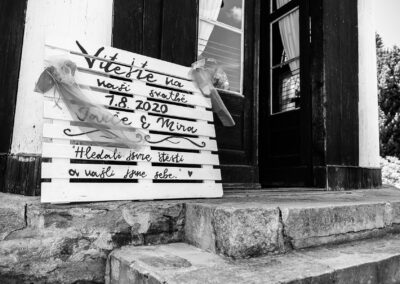 Vítejte na
naší svatbě
7.8.2020
& Míra
"Hledali jsme štěstí
a našli jsme sebe."